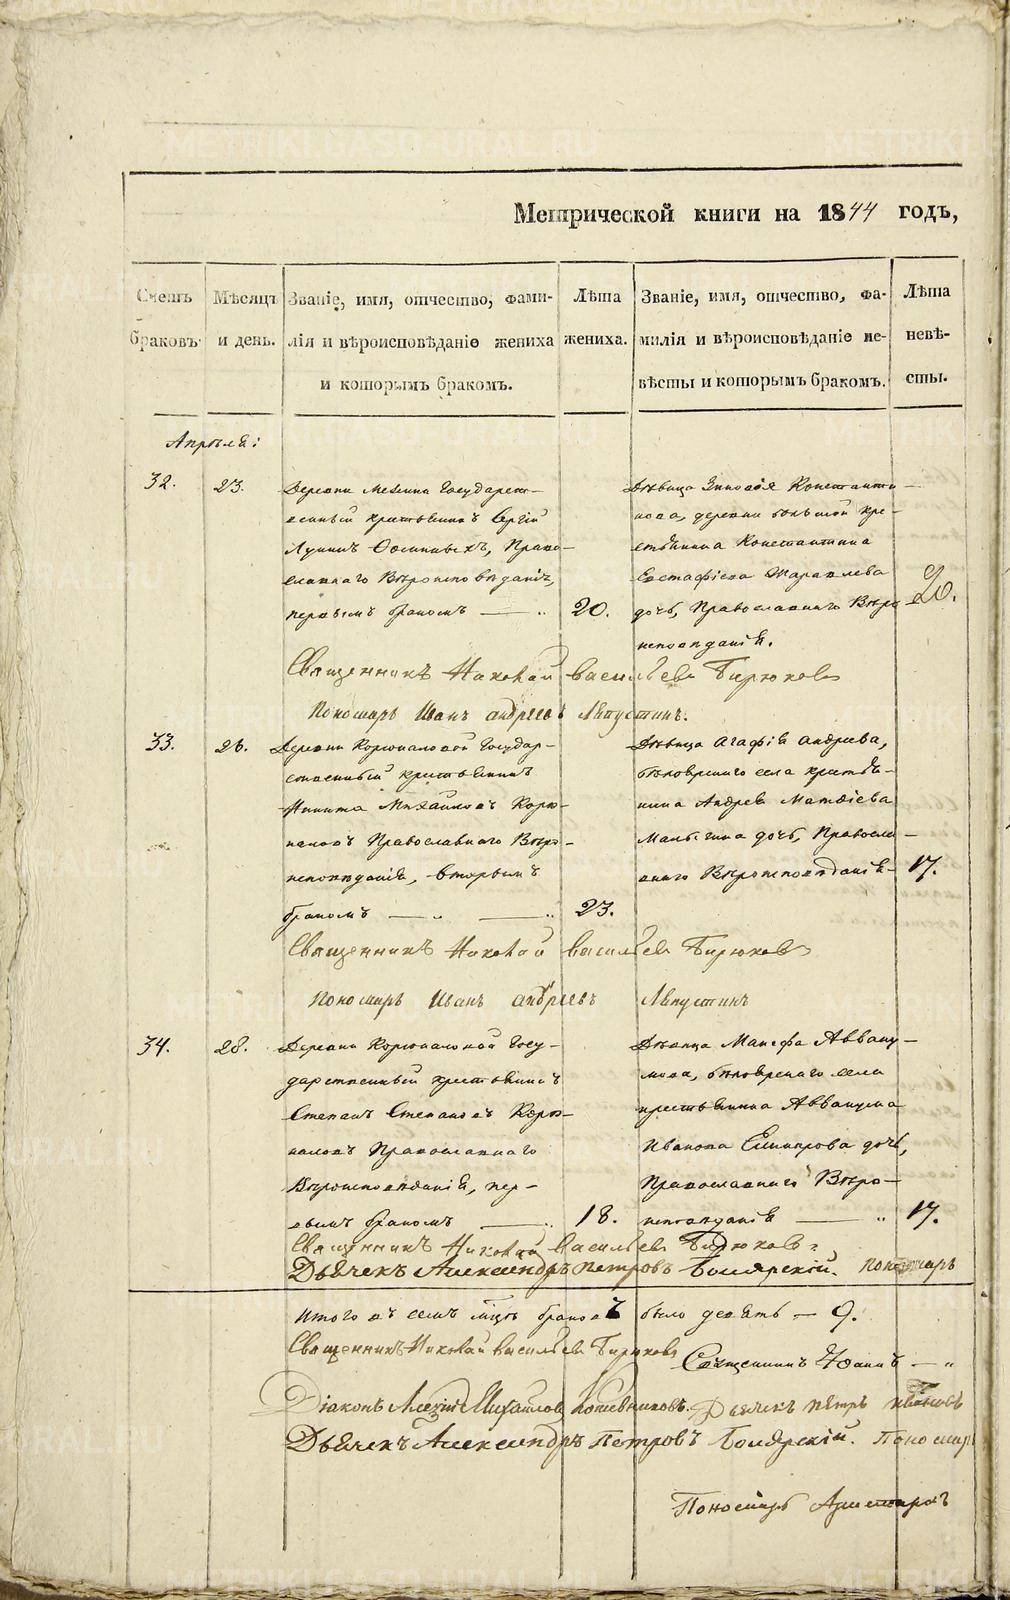 Метрической книги на 1844 годъ,
Счетъ браковъ.
Мѣсяцъ и день.
Званіе, имя, отчество, фами-
лія и вѣроисповѣданіе жениха
и которымъ бракомъ.
Лѣта
жениха.
Званіе, имя, отчество, фа-
милія и вѣроисповѣданіе не-
вѣсты и которымъ бракомъ.
Лѣта
невѣ-
сты.
Апрѣля:
32.
23.
Деревни Государст-
венный крестьянинъ Сергій
Право-
славнаго Вѣроисповѣданія,
первымъ бракомъ
20.
Дѣвица Константи-
нова, деревни кре-
стьянина Константина
Евстафіева
дочь, Православнаго Вѣро-
исповѣданія.
20.
Священникъ Николай Васильевъ Бирюковъ
Пономарь Иванъ Андреевъ
33.
26.
Деревни Корюкаловой Государ-
ственный крестьянинъ
Никита Михайловъ Корю-
каловъ Православнаго Вѣро-
исповѣданія, вторымъ
бракомъ
23.
Дѣвица Агафія Андреева,
села крестья-
нина Андрея Матвіева
дочь, Правосла-
внаго Вѣроисповѣданія
17.
Священникъ Николай Васильевъ Бирюковъ
Пономарь Иванъ Андреевъ
34.
28.
Деревни Корюкаловой Госу-
дарственный крестьянинъ
Степанъ Степановъ Корю-
каловъ Православнаго
Вѣроисповѣданія, пер-
вымъ бракомъ
18.
Дѣвица Манефа Авваку-
мова, села
крестьянина Аввакума
Иванова дочь,
Православнаго Вѣро-
исповѣданія
17.
Священникъ Николай Васильевъ Бирюковъ
Дьячекъ Александръ Петровъ Боярскій. Пономарь
Итого въ семъ мцѣ браковъ было девять — 9.
Священникъ Николай Васильевъ Бирюковъ
Священникъ
Діаконъ Алексій Михайловъ Кожевниковъ. Дьячекъ Петръ Ивановъ
Дьячекъ Александръ Петровъ Боярскій. Пономар
Пономарь
METRIKI.GASO-URAL.RU